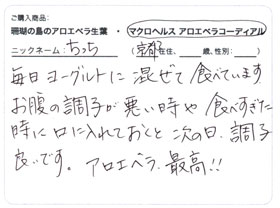 ご購入商品:
珊瑚の島のアロエベラ生葉 ・ マクロヘルス アロエベラコーディアル
ニックネーム: ちっち ( 京都 在住、 歳、性別: )
毎日ヨーグルトに混ぜて食べています
お腹の調子が悪い時や食べすぎた
時に口に入れておくと次の日、調子
良いです。アロエベラ、最高!!